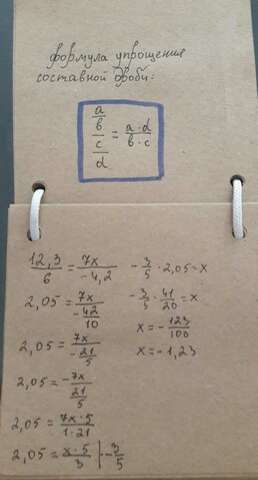 формула упрощения
составной дроби:
a/b / c/d = a·d / b·c
12,3/6 = 7x/-4,2
2,05 = 7x / -42/10
2,05 = 7x / -21/5
2,05 = -7x / 21/5
2,05 = 7x·5 / 1·21
2,05 = x·5/3 | -3/5
-3/5 · 2,05 = x
-3/5 · 41/20 = x
x = -123/100
x = -1,23